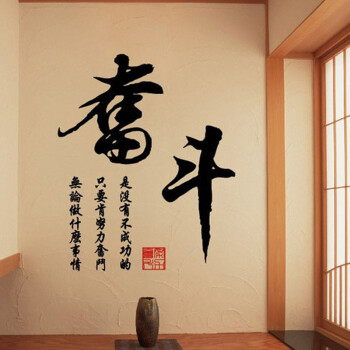 奮斗
無論做什麼事情
只要肯努力奮鬥
是沒有不成功的